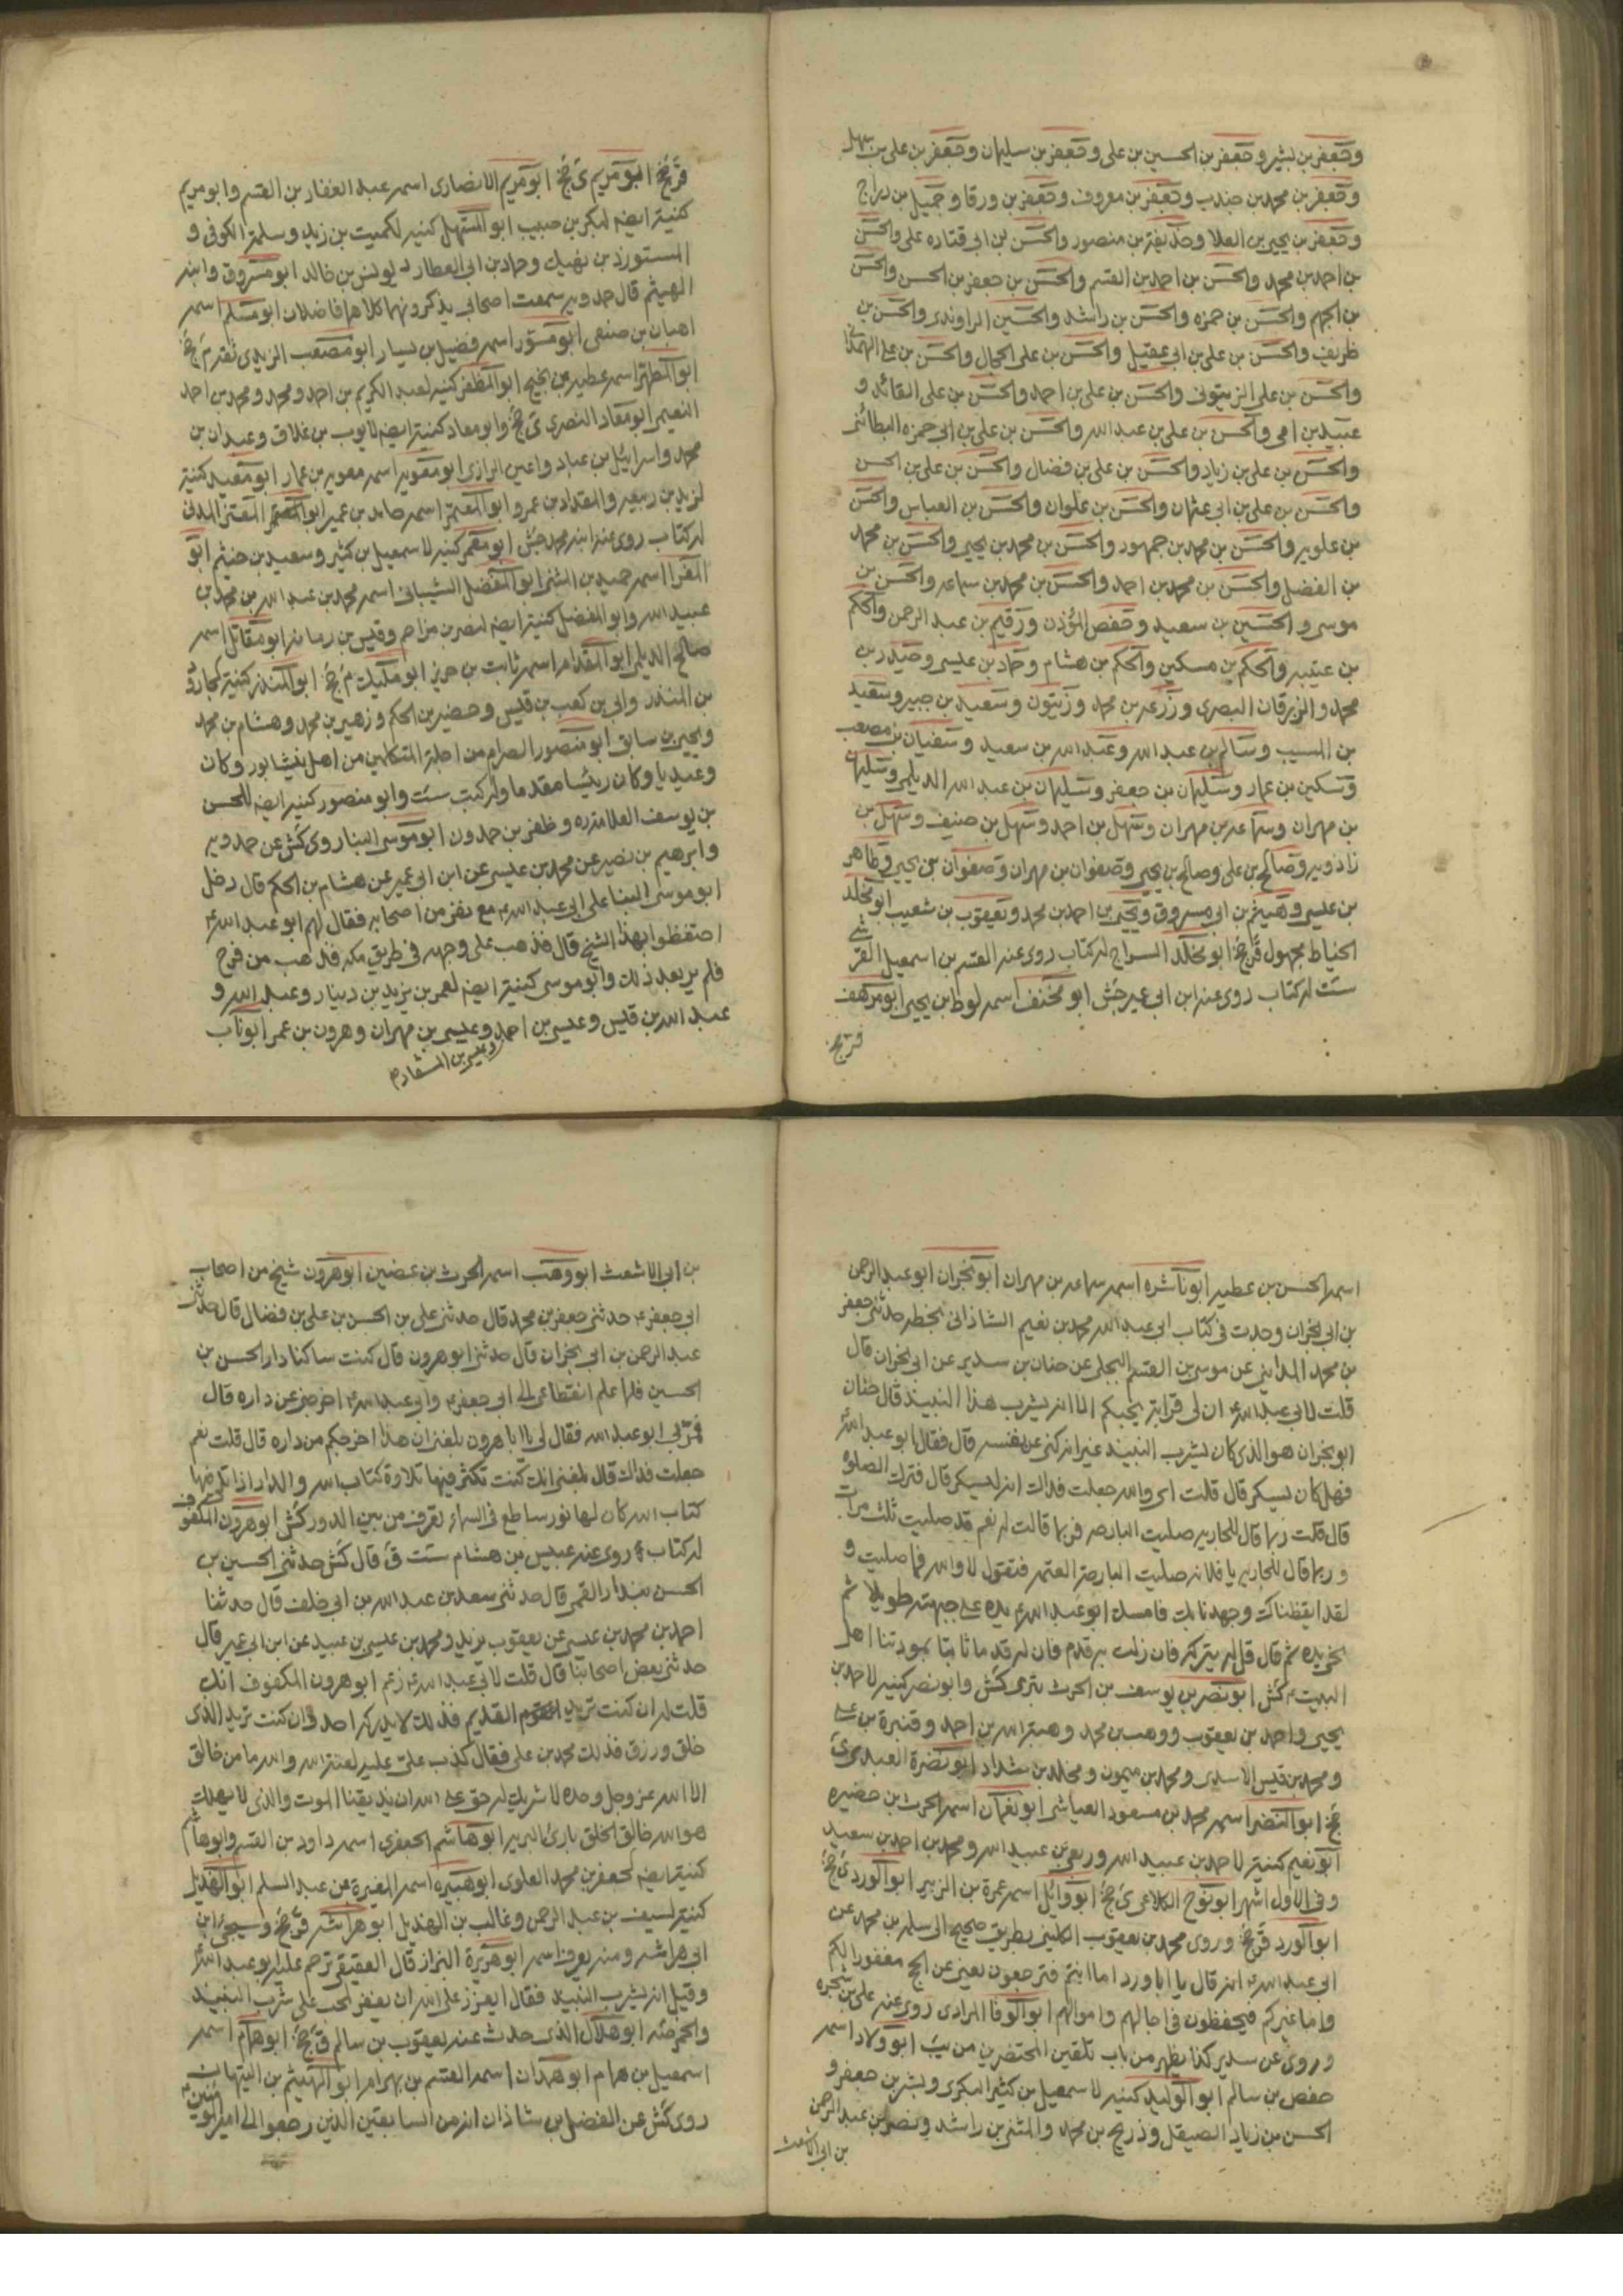 وجعفر بن بشير وجعفر بن الحسين بن على وجعفر بن سليمان وجعفر بن على بن سهل
وجعفر بن محمد بن جندب وجعفر بن معروف وجعفر بن ورقا وجميل بن دراج
وجعفر بن يحيى بن العلا وحذيفة بن منصور والحسن بن ابى قتاده على والحسن
بن احمد بن محمد والحسن بن احمد بن القسم والحسن بن جعفر بن الحسن والحسن
بن الجهم والحسن بن حمزه والحسن بن راشد والحسين الراوندى والحسن بن
ظريف والحسن بن على بن ابى عقيل والحسن بن على الحجال والحسن بن على الهمدانى
والحسن بن على الزيتونى والحسن بن على بن احمد والحسن بن على القائد و
عبيد بن امى والحسن بن على بن عبد الله والحسن بن على بن ابى حمزه البطائنى
والحسن بن على بن زياد والحسن بن على بن فضال والحسن بن على بن الحسن
والحسن بن على بن ابى عثمان والحسن بن علوان والحسن بن العباس والحسن
بن علويه والحسن بن محمد بن جمهور والحسن بن محمد بن يحيى والحسن بن محمد
بن الفضل والحسن بن محمد بن احمد والحسن بن محمد بن سماعه والحسن بن
موسى والحسين بن سعيد وحفص المؤذن ورقيم بن عبد الرحمن والحكم
بن عتيبه والحكم بن مسكين والحكم بن هشام وحماد بن عيسى وحيدر بن
محمد والزبرقان البصرى وزرعه بن محمد وزيتون وسعيد بن جبير وسعيد
بن المسيب وسالم بن عبد الله وعبد الله بن سعيد وسفيان بن مصعب
وسكين بن عمار وسليمان بن جعفر وسليمان بن عبد الله الديلمى وسليمان
بن مهران وسماعه بن مهران وسهل بن احمد وسهل بن حنيف وسهل بن
زادويه وصالح بن على وصالح بن يحيى وصفوان بن مهران وصفوان بن يحيى وطاهر
بن عيسى وهيثم بن ابى مسروق ويحيى بن احمد بن محمد ويعقوب بن شعيب ابو مخلد
الخياط مجهول ق جخ ابو مخلد السراج له كتاب روى عنه القسم بن اسمعيل القرشى
ست له كتاب روى عنه ابن ابى عمير جش ابو مخنف اسمه لوط بن يحيى ابو مرهف
ق جخ
ق جخ ابو مريم ى جخ ابو مريم الانصارى اسمه عبد الغفار بن القسم وابو مريم
كنية ايضا لبكر بن حبيب ابو المستهل كنيه لكميت بن زيد وسلمة الكوفى و
المستورد بن نهيك وحماد بن ابى العطار ليونس بن خالد ابو مسروق وابنه
الهيثم قال حمدويه سمعت اصحابى يذكرونهما كلاهما فاضلان ابو مسلم اسمه
اهبان بن صنعى ابو مسور اسمه فضيل بن يسار ابو مصعب الزيدى ثقة م جخ
ابو المطهر اسمه عطيه بن نجيح ابو المظفر كنيه لعبد الكريم بن احمد ومحمد ومحمد بن احمد
النعيمى ابو معاد النصرى ى جخ وابو معاد كنية ايضه لايوب بن علاق وعبدان بن
محمد واسرائيل بن عباد واعين الرازى ابو معويه اسمه معويه بن عمار ابو معبد كنية
لزيد بن ربيعه والمقداد بن عمرو ابو المعتمر اسمه حامد بن عمير ابو المعتمر المدنى
له كتاب روى عنه ابنه محمد جش ابو معمر كنيه لاسمعيل بن كثير وسعيد بن خيثم ابو
المغرا اسمه حميد بن المثنى ابو المفضل الشيبانى اسمه محمد بن عبد الله بن محمد بن
عبيد الله وابو المفضل كنية ايضه لنصر بن مزاحم وقيس بن رمانه ابو مقاتل اسمه
صالح الديلمى ابو المقدام اسمه ثابت بن هرمز ابو مليك م جخ ابو المنذر كنية لجارود
بن المنذر وابى بن كعب بن قيس وحضير بن الحكم وزهير بن محمد وهشام بن محمد
ويحيى بن سابق ابو منصور الصرام من اجلة المتكلمين من اهل نيشابور وكان
وعيديا وكان رئيسا مقدما وله كتب ست وابو منصور كنيه ايضه للحسن
بن يوسف العلامة ره وظفر بن حمدون ابو موسى البنا روى كش عن حمدويه
وابرهيم بن نصير عن محمد بن عيسى عن ابن ابى عمير عن هشام بن الحكم قال دخل
ابو موسى البنا على ابى عبد الله ع مع نفر من اصحابه فقال لهم ابو عبد الله ع
احتفظوا بهذا الشيخ قال فذهب على وجهه فى طريق مكه فذهب من قزح
فلم ير بعد ذلك وابو موسى كنية ايضه لعمر بن يزيد بن دينار وعبد الله و
عبد الله بن قيس وعيسى بن احمد وعيسى بن مهران وهرون بن عمر ابو ناب
وعيسى بن المستفاد م
اسمه الحسن بن عطيه ابو ناشره اسمه سماعه بن مهران ابو نجران ابو عبد الرحمن
بن ابى نجران وجدت فى كتاب ابى عبد الله محمد بن نعيم الشاذانى بخطه حدثنى جعفر
بن محمد المداينى عن موسى بن القسم البجلى عن حنان بن سدير عن ابى نجران قال
قلت لابى عبد الله ع ان لى قرابة يحبكم الا انه يشرب هذا النبيذ قال حنان
ابو نجران هو الذى كان يشرب النبيذ غير انه كنى عن نفسه قال فقال ابو عبد الله ع
فهل كان يسكر قال قلت اى والله جعلت فداك انه ليسكر قال فترك الصلوة
قال قلت ربما قال للجاريه صليت البارحه فربما قالت له نعم قد صليت ثلث مرات
وربما قال للجاريه يا فلانه صليت البارحة العتمه فتقول لا والله فما صليت و
لقد ايقظناك وجهدنا بك فامسك ابو عبد الله ع يده على جبهته طويلا ثم
نحى يده ثم قال قل له يتركه فان زلت به قدم فان له قدما ثابتا بمودتنا اهل
البيت ع كش ابو نصر بن يوسف بن الحرث بترى كش وابو نصر كنيه لاحمد بن
يحيى واحمد بن يعقوب ووهب بن محمد وهبة الله بن احمد وقنبرة بن على
ومحمد بن قيس الاسدى ومحمد بن ميمون ومخلد بن شداد ابو نضرة العبدى ى
جخ ابو النضر اسمه محمد بن مسعود العياشى ابو نعمان اسمه الحرث بن حضيره
ابو نعيم كنيته لاحمد بن عبيد الله وربعى بن عبيد الله ومحمد بن احمد بن سعيد
وفى الاول اشهر ابو نوح الكلاعى ى جخ ابو وائل اسمه عمرة بن الزبير ابو الورد ى جخ
ابو الورد ق جخ وروى محمد بن يعقوب الكلينى بطريق صحيح الى سلمه بن محمد عن
ابى عبد الله ع انه قال يا ابا ورد اما انتم فترجعون يعنى عن الحج مغفورا لكم
واما غيركم فيحفظون فى اهاليهم واموالهم ابو الوفا المرادى روى عنه على بن شجره
وروى عن سدير كذا يظهر من باب تلقين المحتضرين من يب ابو ولاد اسمه
حفص بن سالم ابو الوليد كنيه لاسمعيل بن كثير البكرى وبشر بن جعفر و
الحسن بن زياد الصيقل وذريح بن محمد والمثنى بن راشد ونصر بن عبد الرحمن
بن ابى الاشعث
بن ابى الاشعث ابو وهب اسمه الحرث بن غضين ابو هرون شيخ من اصحاب
ابى جعفر ع حدثنى جعفر بن محمد قال حدثنى على بن الحسن بن على بن فضال قال حدثنى
عبد الرحمن بن ابى نجران قال حدثنى ابو هرون قال كنت ساكنا دار الحسن بن
الحسين فلما علم انقطاعى الى ابى جعفر ع وابى عبد الله ع اخرجنى عن داره قال
فمر بى ابو عبد الله فقال لى يا ابا هرون بلغنى ان هذا اخرجكم من داره قال قلت نعم
جعلت فداك قال بلغنى انك كنت تكثر فيها تلاوة كتاب الله والدار اذا تلى فيها
كتاب الله كان لها نور ساطع فى السماء تعرف من بين الدور كش ابو هرون المكفوف
له كتاب روى عنه عبيس بن هشام ست ق قال كش حدثنى الحسين بن
الحسن بندار القمى قال حدثنى سعد بن عبد الله بن ابى خلف قال حدثنا
احمد بن محمد بن عيسى عن يعقوب يزيد ومحمد بن عيسى بن عبيد عن ابن ابى عمير قال
حدثنى بعض اصحابنا قال قلت لابى عبد الله ع زعم ابو هرون المكفوف انك
قلت له ان كنت تريد القديم فذلك لا يدركه احد وان كنت تريد الذى
خلق ورزق فذلك محمد بن على فقال كذب على عليه لعنة الله والله ما من خالق
الا الله عز وجل وحده لا شريك له حق على الله ان يذيقنا الموت والذى لا يهلك
هو الله خالق الخلق بارئ البريه ابو هاشم الجعفرى اسمه داود بن القسم وابو هاشم
كنية ايضه لجعفر بن محمد العلوى ابو هبيره اسمه المغيرة بن عبد السلم ابو الهذيل
كنية لسيف بن عبد الرحمن وغالب بن الهذيل ابو هراشه ق جخ وسيجئ ابن
ابى هراشه ومنه يعرف اسمه ابو هريرة البزاز قال العقيقى ترحم عليه ابو عبد الله ع
وقيل انه يشرب النبيذ فقال ايعزز على الله ان يغفر لمحب على شرب النبيذ
والخمر صه ابو هلال الذى حدث عنه يعقوب بن سالم ق جخ ابو همام اسمه
اسمعيل بن همام ابو همدان اسمه القسم بن بهرام ابو الهيثم بن التيهان
روى كش عن الفضل بن شاذان انه من السابقين الذين رجعوا الى امير المؤمنين ع